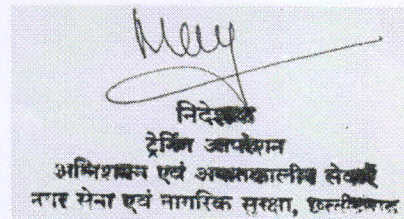 निदेशक
ट्रेनिंग आपरेशन
अग्निशमन एवं आपातकालीन सेवाएँ
नगर सेना एवं नागरिक सुरक्षा,